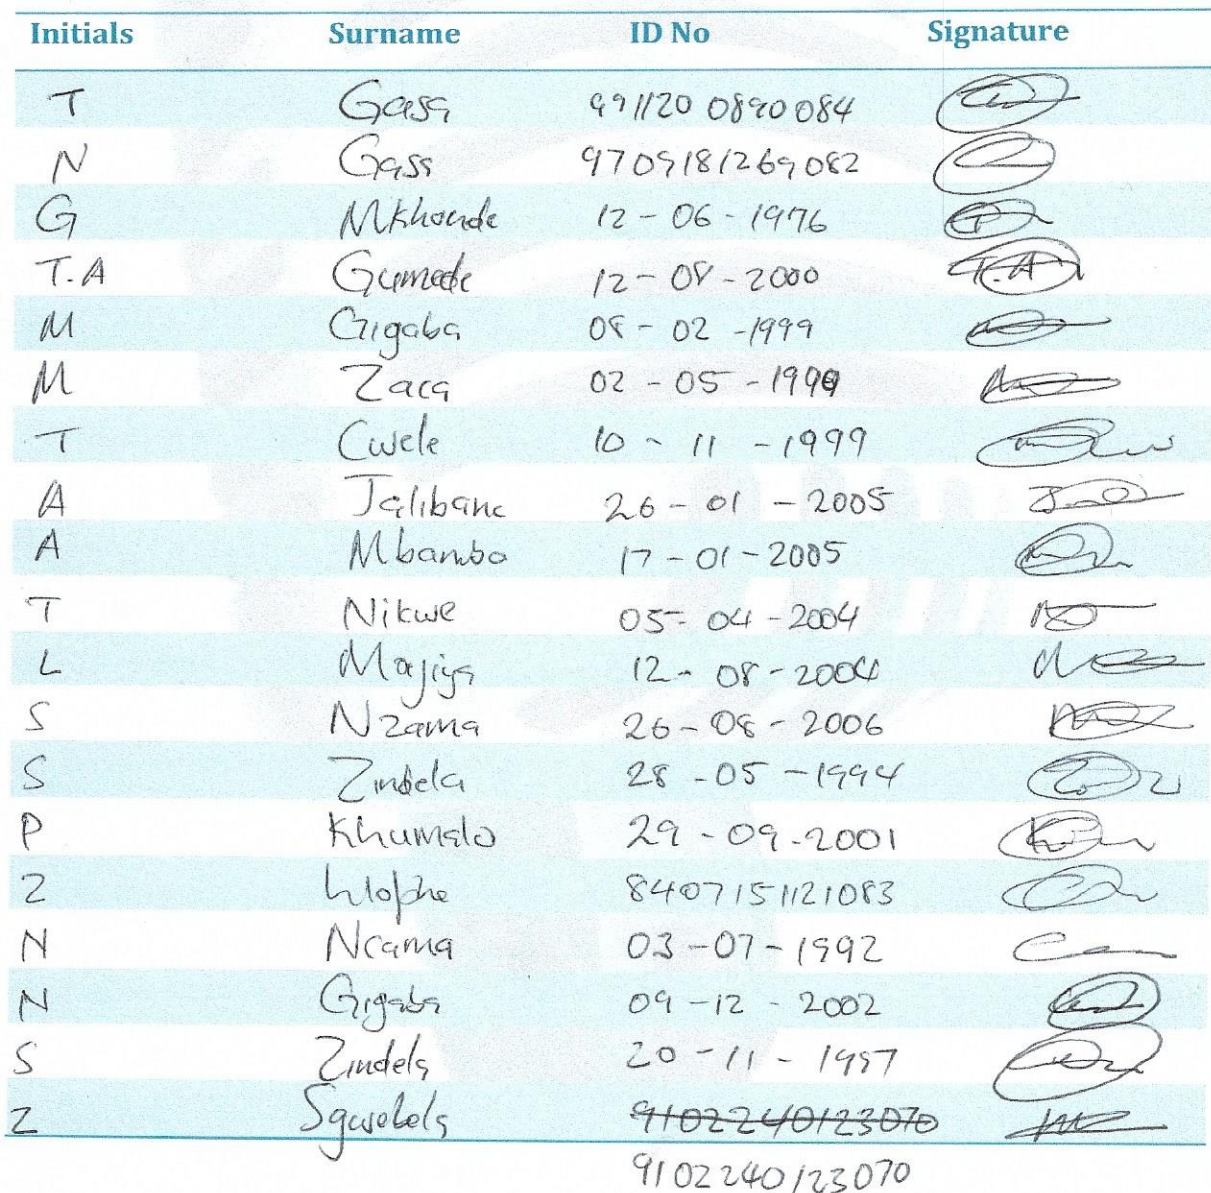 Initials Surname ID No Signature
T Gasa 9911200890084
N Gasa 9709181269082
G Mkhonde 12-06-1976
T.A Gumede 12-08-2000 T.A
M Gigaba 08-02-1999
M Zaca 02-05-1999
T Cwele 10-11-1999
A Jalibane 26-01-2005
A Mbambo 17-01-2005
T Nikwe 05-04-2004
L Majiya 12-08-2004
S Nzama 26-08-2006
S Zindela 28-05-1994
P Khumalo 29-09-2001
Z hlophe 8407151121083
N Ncama 03-07-1992
N Gigaba 09-12-2002
S Zindela 20-11-1997
Z 9102240123070
9102240123070